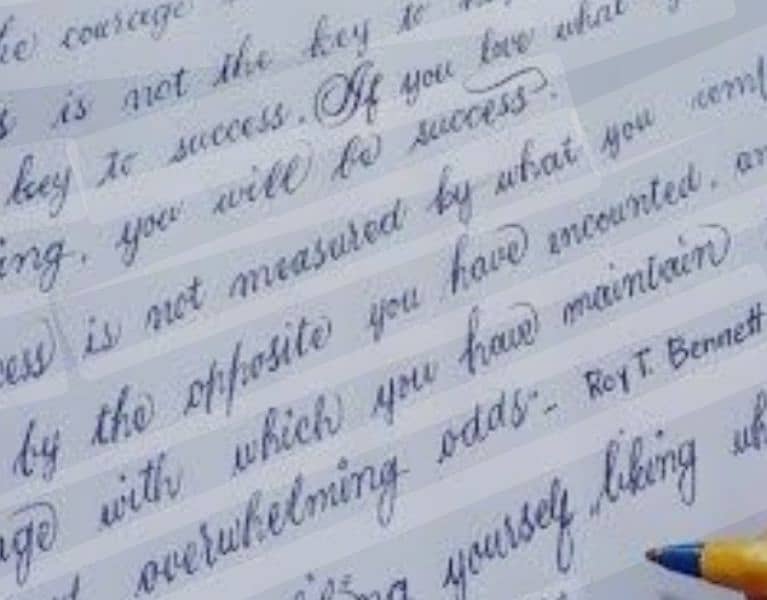 he courage
s is not the key to
key to success. If you love what
ing, you will be success.
cess is not measured by what you
by the opposite you have encounted, an
age with which you have maintain
overwhelming odds"- Roy T. Bennett
yourself, liking wh